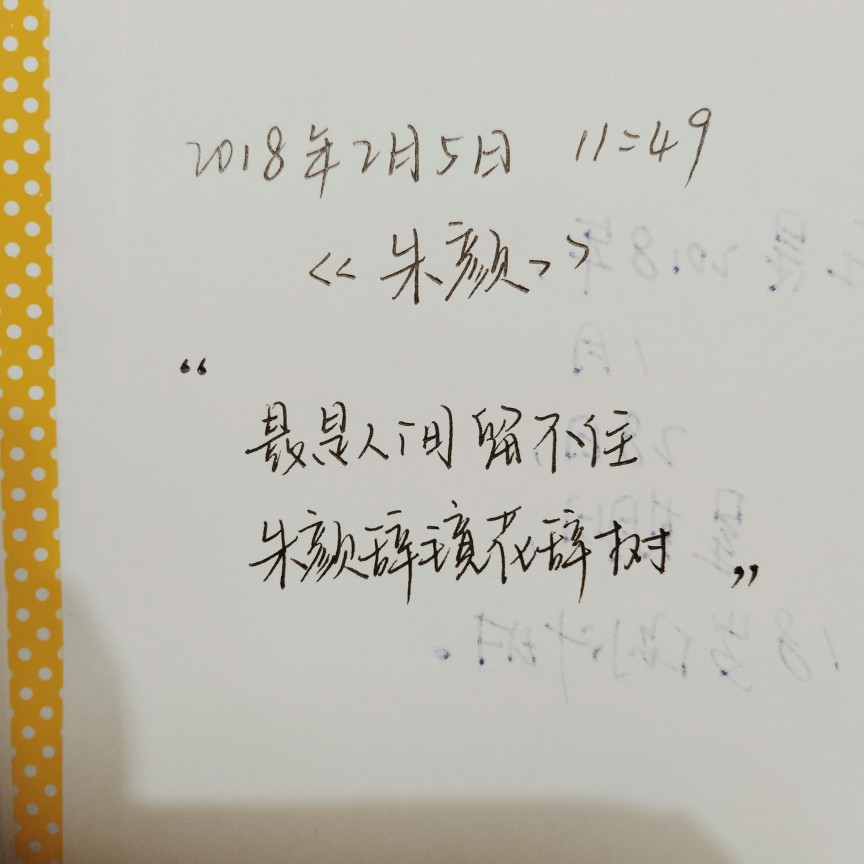 2018年2月5日 11:49
<<朱颜>>
“
最是人间留不住
朱颜辞镜花辞树 ”